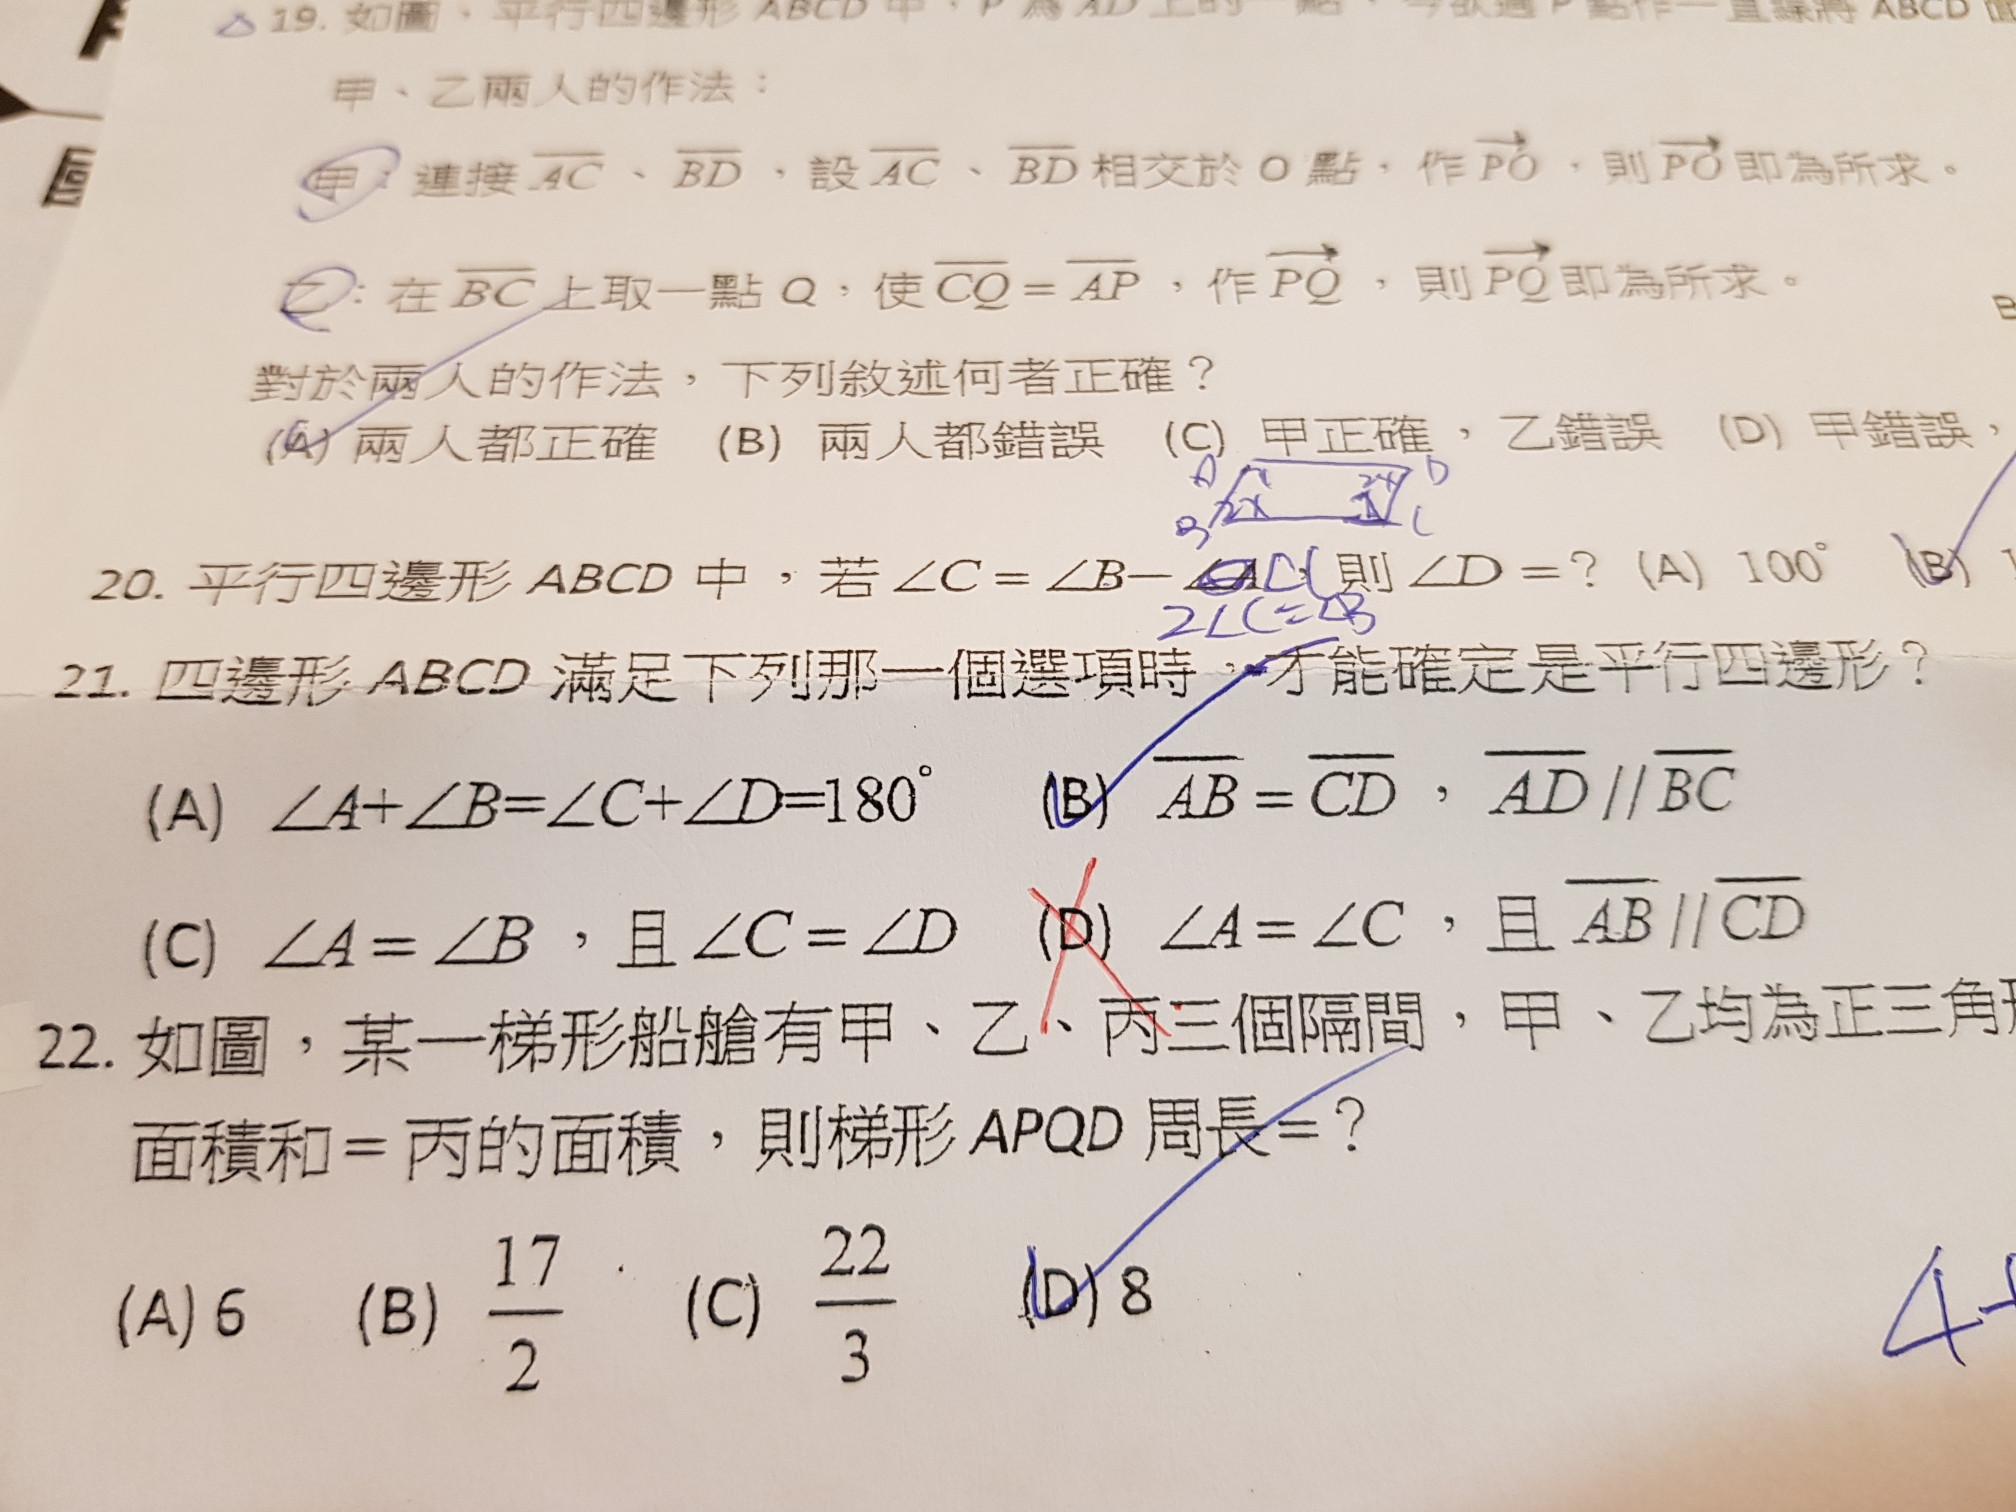 19. 如圖，平行四邊形 ABCD 中，P 為 AD 上的一點，今欲過 P 點作一直線將 ABCD
甲、乙兩人的作法：
甲：連接 AC、BD，設 AC、BD 相交於 O 點，作 PO，則 PO 即為所求。
乙：在 BC 上取一點 Q，使 CQ = AP，作 PQ，則 PQ 即為所求。
對於兩人的作法，下列敘述何者正確？
(A) 兩人都正確 (B) 兩人都錯誤 (C) 甲正確，乙錯誤 (D) 甲錯誤，
A D
2x
B C
20. 平行四邊形 ABCD 中，若 ∠C = ∠B− ∠C 則 ∠D = ？ (A) 100° (B) 1
2∠C=∠B
21. 四邊形 ABCD 滿足下列那一個選項時，才能確定是平行四邊形？
(A) ∠A+∠B=∠C+∠D=180° (B) AB = CD，AD // BC
(C) ∠A = ∠B，且 ∠C = ∠D (D) ∠A = ∠C，且 AB // CD
22. 如圖，某一梯形船艙有甲、乙、丙三個隔間，甲、乙均為正三角形
面積和 = 丙的面積，則梯形 APQD 周長 = ？
(A) 6 (B) 17/2 (C) 22/3 (D) 8
4+